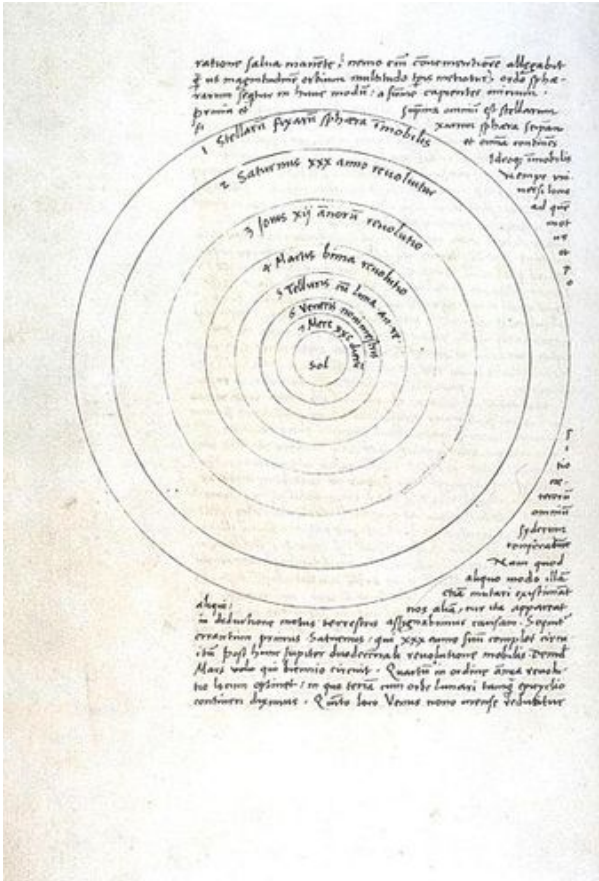 ratione salua manente: nemo em̄ conuenientiorē allegabit
q̄ ut magnitudinē orbium multitudo tp̄is metiatur, ordo sphæ-
rarum sequitur in hunc modū: a summo capientes initium.
prima et suprema omniū est stellarum
fi xarum sphæra seipsam
et omnia continēs
Ideoq; īmobilis
Nempe vni
uersi locus
ad quē
mot
us
et
1 Stellarū fixarū sphæra īmobilis
2 Saturnus xxx anno reuoluitur
3 Jouis xij annorū reuolutio
4 Martis bima reuolutio
5 Telluris cū luna an. re
6 Veneris nonimestris
7 Merc xxc dierū
Sol
tio
ce-
terorū
omniū
syderum
conferatur
Nam quod
aliquo modo illā
etiā mutari existimāt
aliqui: nos aliā, cur ita appareat
in deductione motus terrestris assignabimus causam. Sequit̄
errantium primus Saturnus: qui xxx anno suū complet circu
itū post hunc Jupiter duodecennali reuolutione mobilis Deinde
Mars volo qui biennio circuit. Quartū in ordine annua reuolu-
tio locum optinet: in quo terrā cum orbe lunari tanq̄ epicyclio
contineri diximus. Quinto loco Venus nono mense reducitur